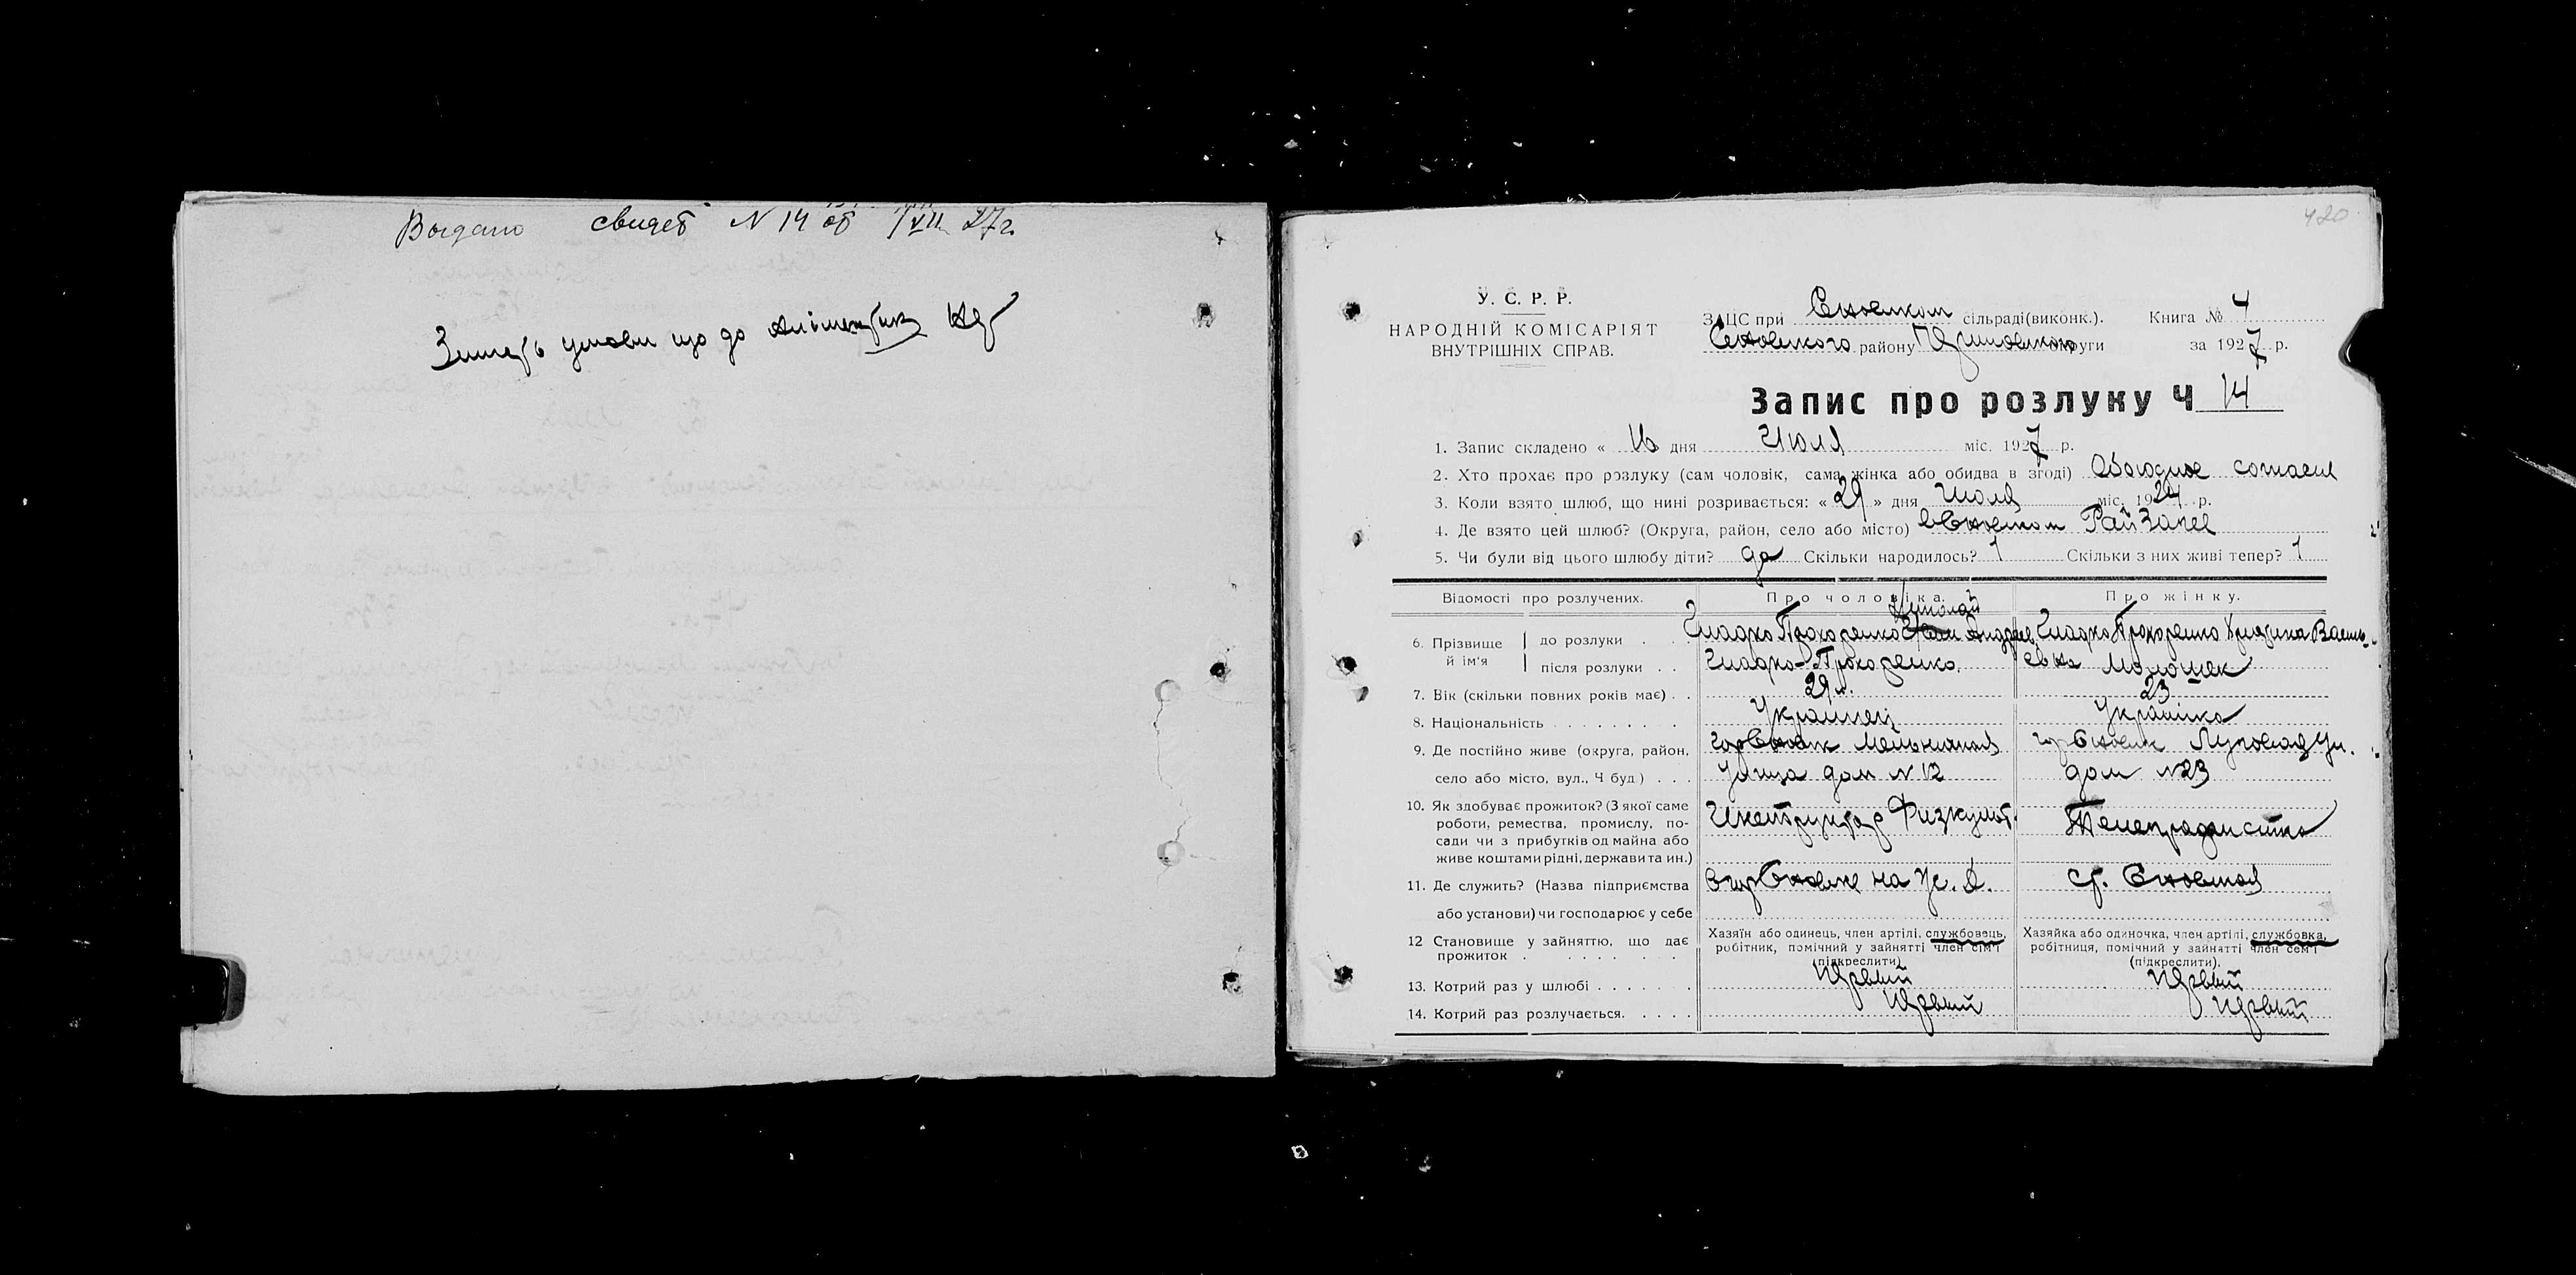 свидет N 14 от 1/VII 27 г.
умови що до
420
У. С. Р. Р.
НАРОДНІЙ КОМІСАРІЯТ
ВНУТРІШНІХ СПРАВ.
ЗАЦС при Сновском сільраді (виконк.). Книга № 4
Сновского району округи за 1927 р.
Запис про розлуку Ч 14
1. Запис складено « 16 дня Июля міс. 1927 р.
2. Хто прохає про розлуку (сам чоловік, сама жінка або обидва в згоді) Обоюдное согласия
3. Коли взято шлюб, що нині розривається: « 29 » дня Июля міс. 1924 р.
4. Де взято цей шлюб? (Округа, район, село або місто) в Сновском РайЗагсе
5. Чи були від цього шлюбу діти? да Скільки народилось? 1 Скільки з них живі тепер? 1
Відомості про розлучених. Про чоловіка. Про жінку.
Николай
6. Прізвище й ім'я до розлуки Гладко Прохоренко Иван Андрев. Гладко Прохоренко Василь-
після розлуки Гладко-Прохоренко евна
7. Вік (скільки повних років має) 29 л. 23
8. Національність Українец Українка
9. Де постійно живе (округа, район, гор Сновск гор Сновск Луговая ул.
село або місто, вул., Ч буд.) улица дом N 12 дом N 23
10. Як здобуває прожиток? (З якої саме
роботи, ремества, промислу, по- Инструктор Физкульт. Телеграфистка
сади чи з прибутків од майна або
живе коштами рідні, держави та ин.)
11. Де служить? (Назва підприємства в гор Сновск на ст. Сновская
або установи) чи господарює у себе
12 Становище у зайняттю, що дає прожиток Хазяїн або одинець, член артілі, службовець, робітник, помічний у зайнятті член сім'ї (підкреслити) Хазяйка або одиночка, член артілі, службовка, робітниця, помічний у зайнятті член сем'ї (підкреслити).
13. Котрий раз у шлюбі Первый Первый
14. Котрий раз розлучається. Первый Первый